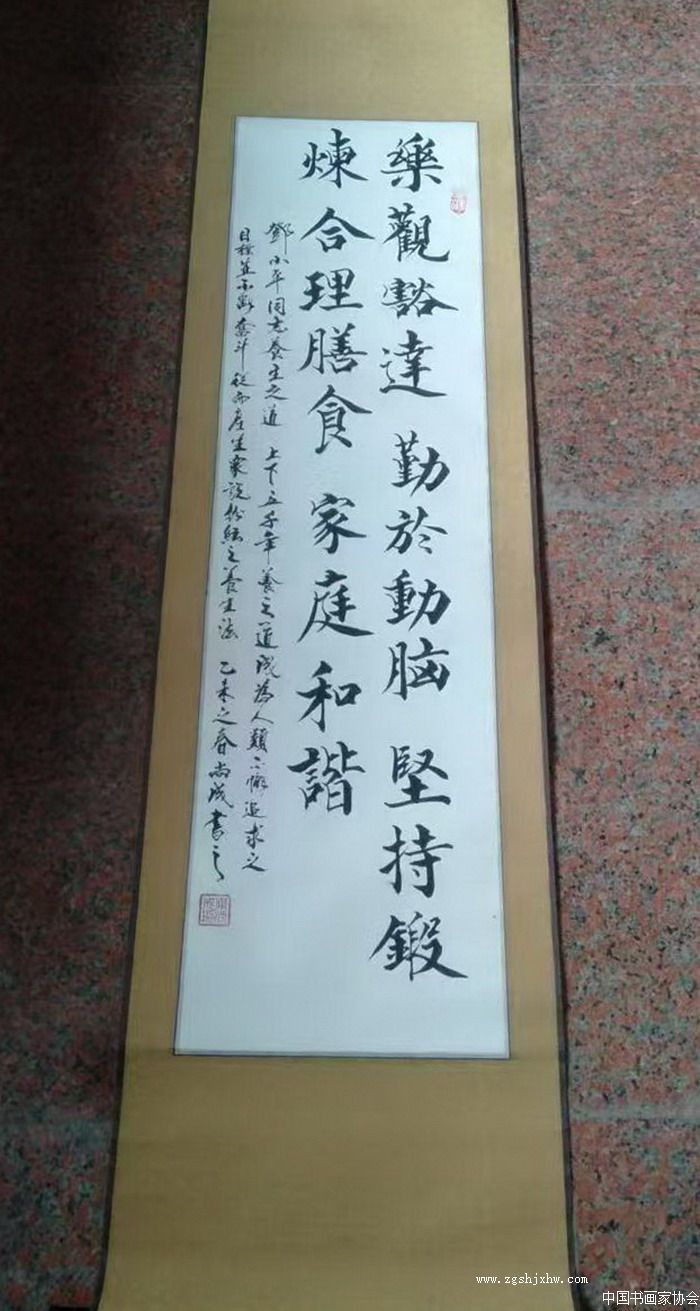 樂觀豁達 勤於動脑 堅持鍛
煉 合理膳食 家庭和諧
鄧小平同志養生之道 上下五千年養生道成為人類不懈追求之
目標並不斷奋斗 從而產生衆說紛紜之養生法 乙未之春尚成書之
www.zgshjxhw.com
中国书画家协会